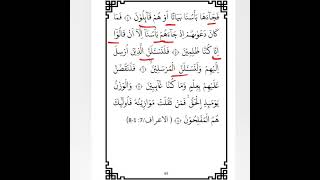 فَجَآءَهَا بَأْسُنَا بَيَاتًا أَوْ هُمْ قَآئِلُونَ ۝ فَمَا
كَانَ دَعْوٰيهُمْ إِذْ جَآءَهُمْ بَأْسُنَا إِلَّا أَنْ قَالُوا
إِنَّا كُنَّا ظٰلِمِينَ ۝ فَلَنَسْـَٔلَنَّ الَّذِينَ أُرْسِلَ
إِلَيْهِمْ وَلَنَسْـَٔلَنَّ الْمُرْسَلِينَ ۝ فَلَنَقُصَّنَّ
عَلَيْهِمْ بِعِلْمٍ وَمَا كُنَّا غَآئِبِينَ ۝ وَالْوَزْنُ
يَوْمَئِذٍ الْحَقُّ فَمَنْ ثَقُلَتْ مَوَازِينُهُ فَأُولٰٓئِكَ
هُمُ الْمُفْلِحُونَ ۝ ( الاعراف/7: 1-8)